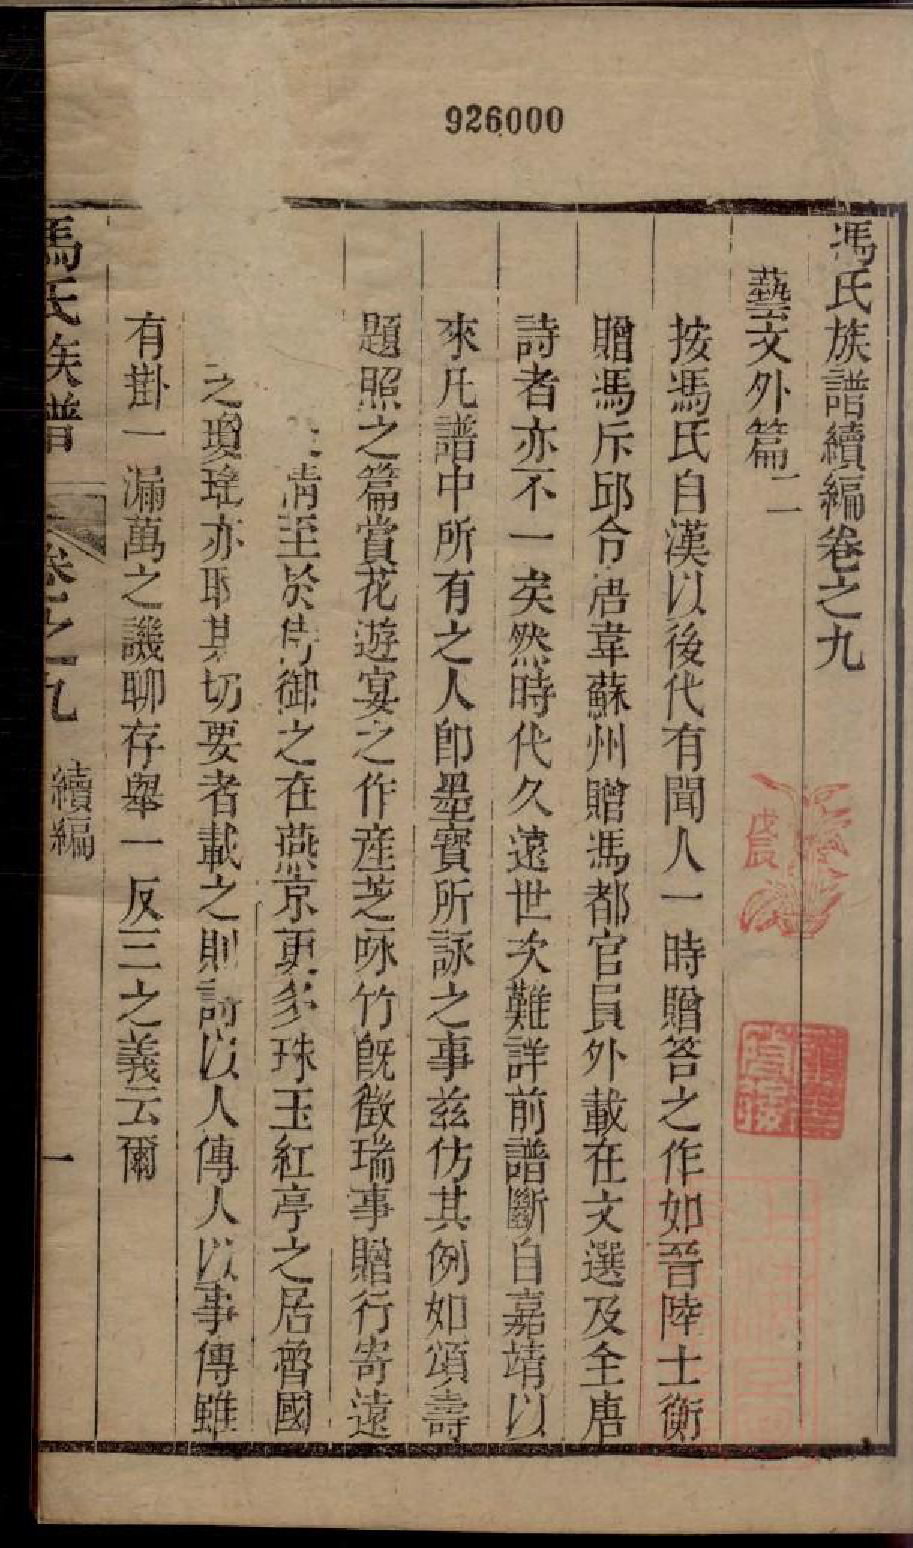 926000
馮氏族譜續編卷之九
藝文外篇二
按馮氏自漢以後代有聞人一時贈答之作如晉陸士衡
贈馮斥邱令唐韋蘇州贈馮都官員外載在文選及全唐
詩者亦不一矣然時代久遠世次難詳前譜斷自嘉靖以
來凡譜中所有之人卽墨寶所詠之事兹仿其例如頌壽
題照之篇賞花遊宴之作産芝咏竹旣徵瑞事贈行寄遠
情至於侍御之在燕京更多珠玉紅亭之居魯國
之瓊瑤亦取其切要者載之則詩以人傳人以事傳雖
有掛一漏萬之譏聊存舉一反三之義云爾
馮氏族譜 卷之九 續編 一
戊辰